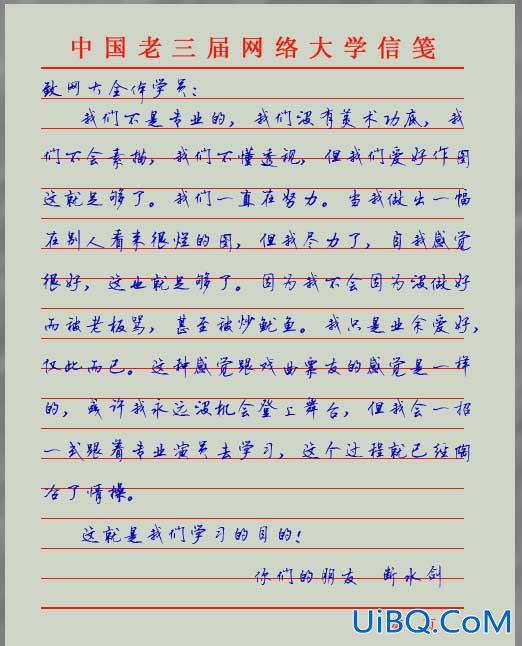 中国老三届网络大学信笺
致网大全体学员：
我们不是专业的，我们没有美术功底，我
们不会素描，我们不懂透视，但我们爱好作图
这就足够了。我们一直在努力。当我做出一幅
在别人看来很烂的图，但我尽力了，自我感觉
很好，这也就足够了。因为我不会因为没做好
而被老板骂，甚至被炒鱿鱼。我只是业余爱好，
仅此而已。这种感觉跟戏曲票友的感觉是一样
的，或许我永远没机会登上舞台，但我会一招
一式跟着专业演员去学习，这个过程就已经陶
冶了情操。
这就是我们学习的目的！
你们的朋友 断水剑
UiBQ.CoM